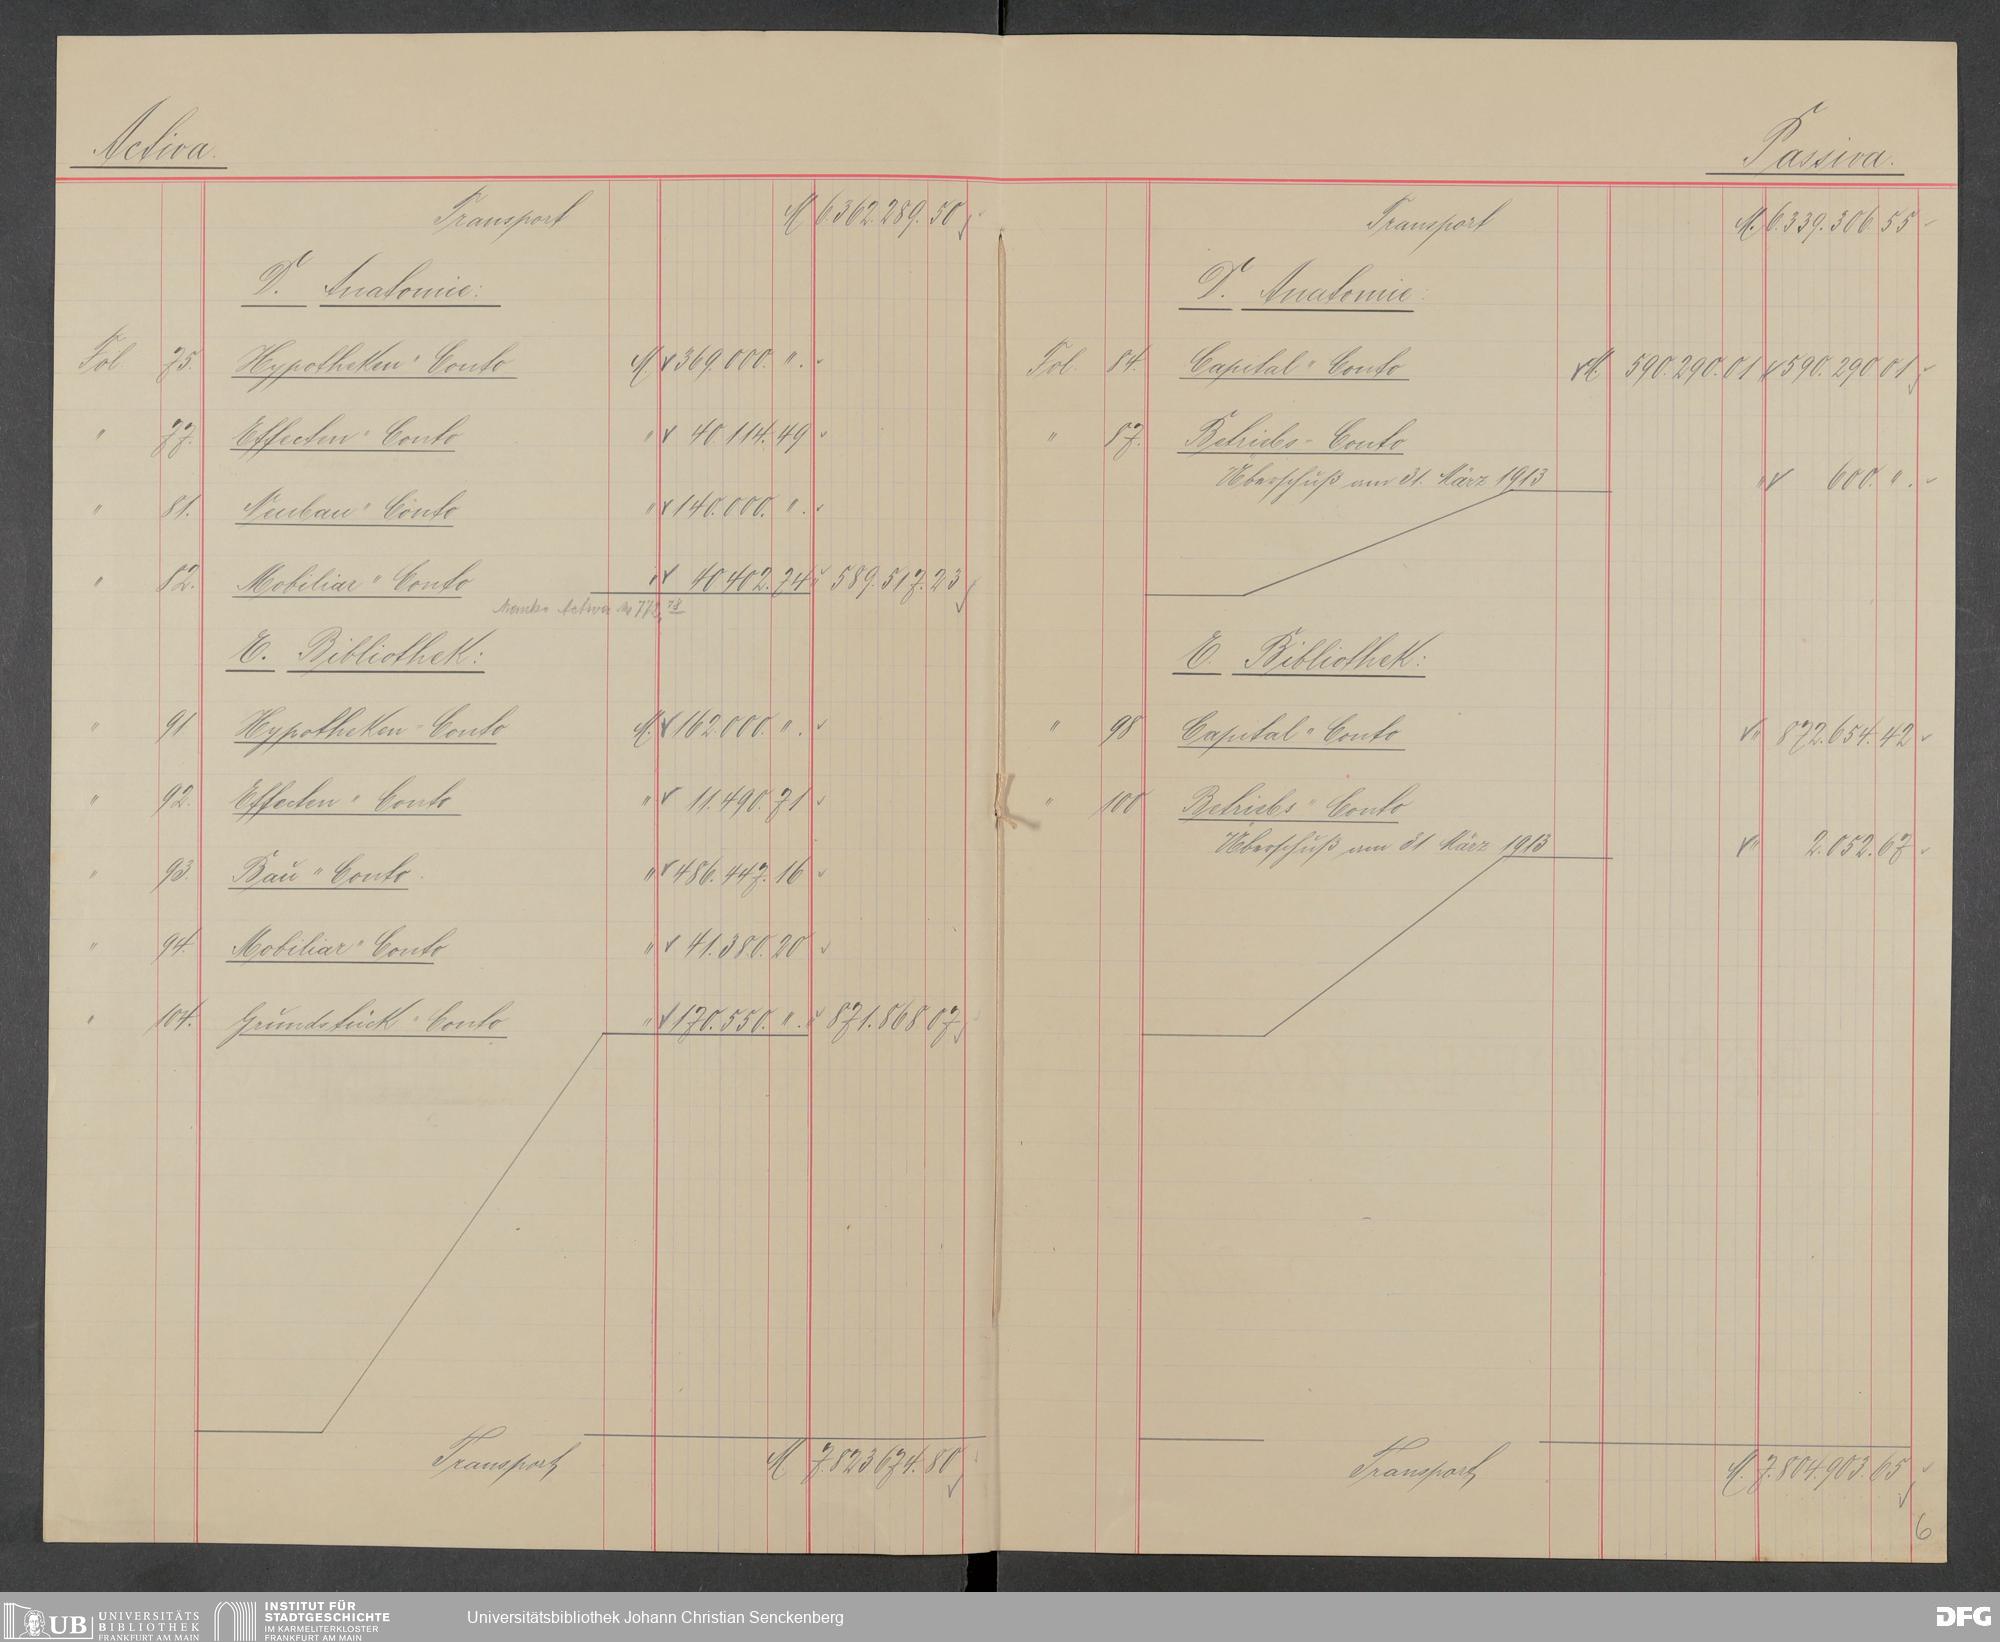 Activa.
Transport M 6.362.289.50
D. Anatomie:
Fol 75. Hypotheken " Conto M 369.000. " .
" 77. Effecten " Conto " 40.114.49
" 81. Neubau " Conto " 140.000. " .
" 82. Mobiliar " Conto " 40.402.74 " 589.517.23
Manko Activa M 772,78
E. Bibliothek:
" 91 Hypotheken - Conto M. 162.000. " .
" 92. Effecten " Conto " 11.490.71
" 93. Bau " Conto. " 486.447.16
" 94. Mobiliar " Conto " 41.380.20
" 104. Grundstück " Conto " 170.550. " . " 871.868 07
Transport M 7.823 674.80
Passiva.
Transport M. 6.339.306.55
D. Anatomie:
Fol. 84. Capital " Conto M. 590.290.01 590.290 01
" 87. Betriebs - Conto
Überschuß am 31. März 1913 " 600. " .
E. Bibliothek:
" 98 Capital " Conto " 872.654.42
" 100 Betriebs " Conto
Überschuß am 31 März 1913 " 2.052.67
Transport M. 7.804.903.65
6
UB UNIVERSITÄTS BIBLIOTHEK FRANKFURT AM MAIN
INSTITUT FÜR STADTGESCHICHTE IM KARMELITERKLOSTER FRANKFURT AM MAIN
Universitätsbibliothek Johann Christian Senckenberg
DFG